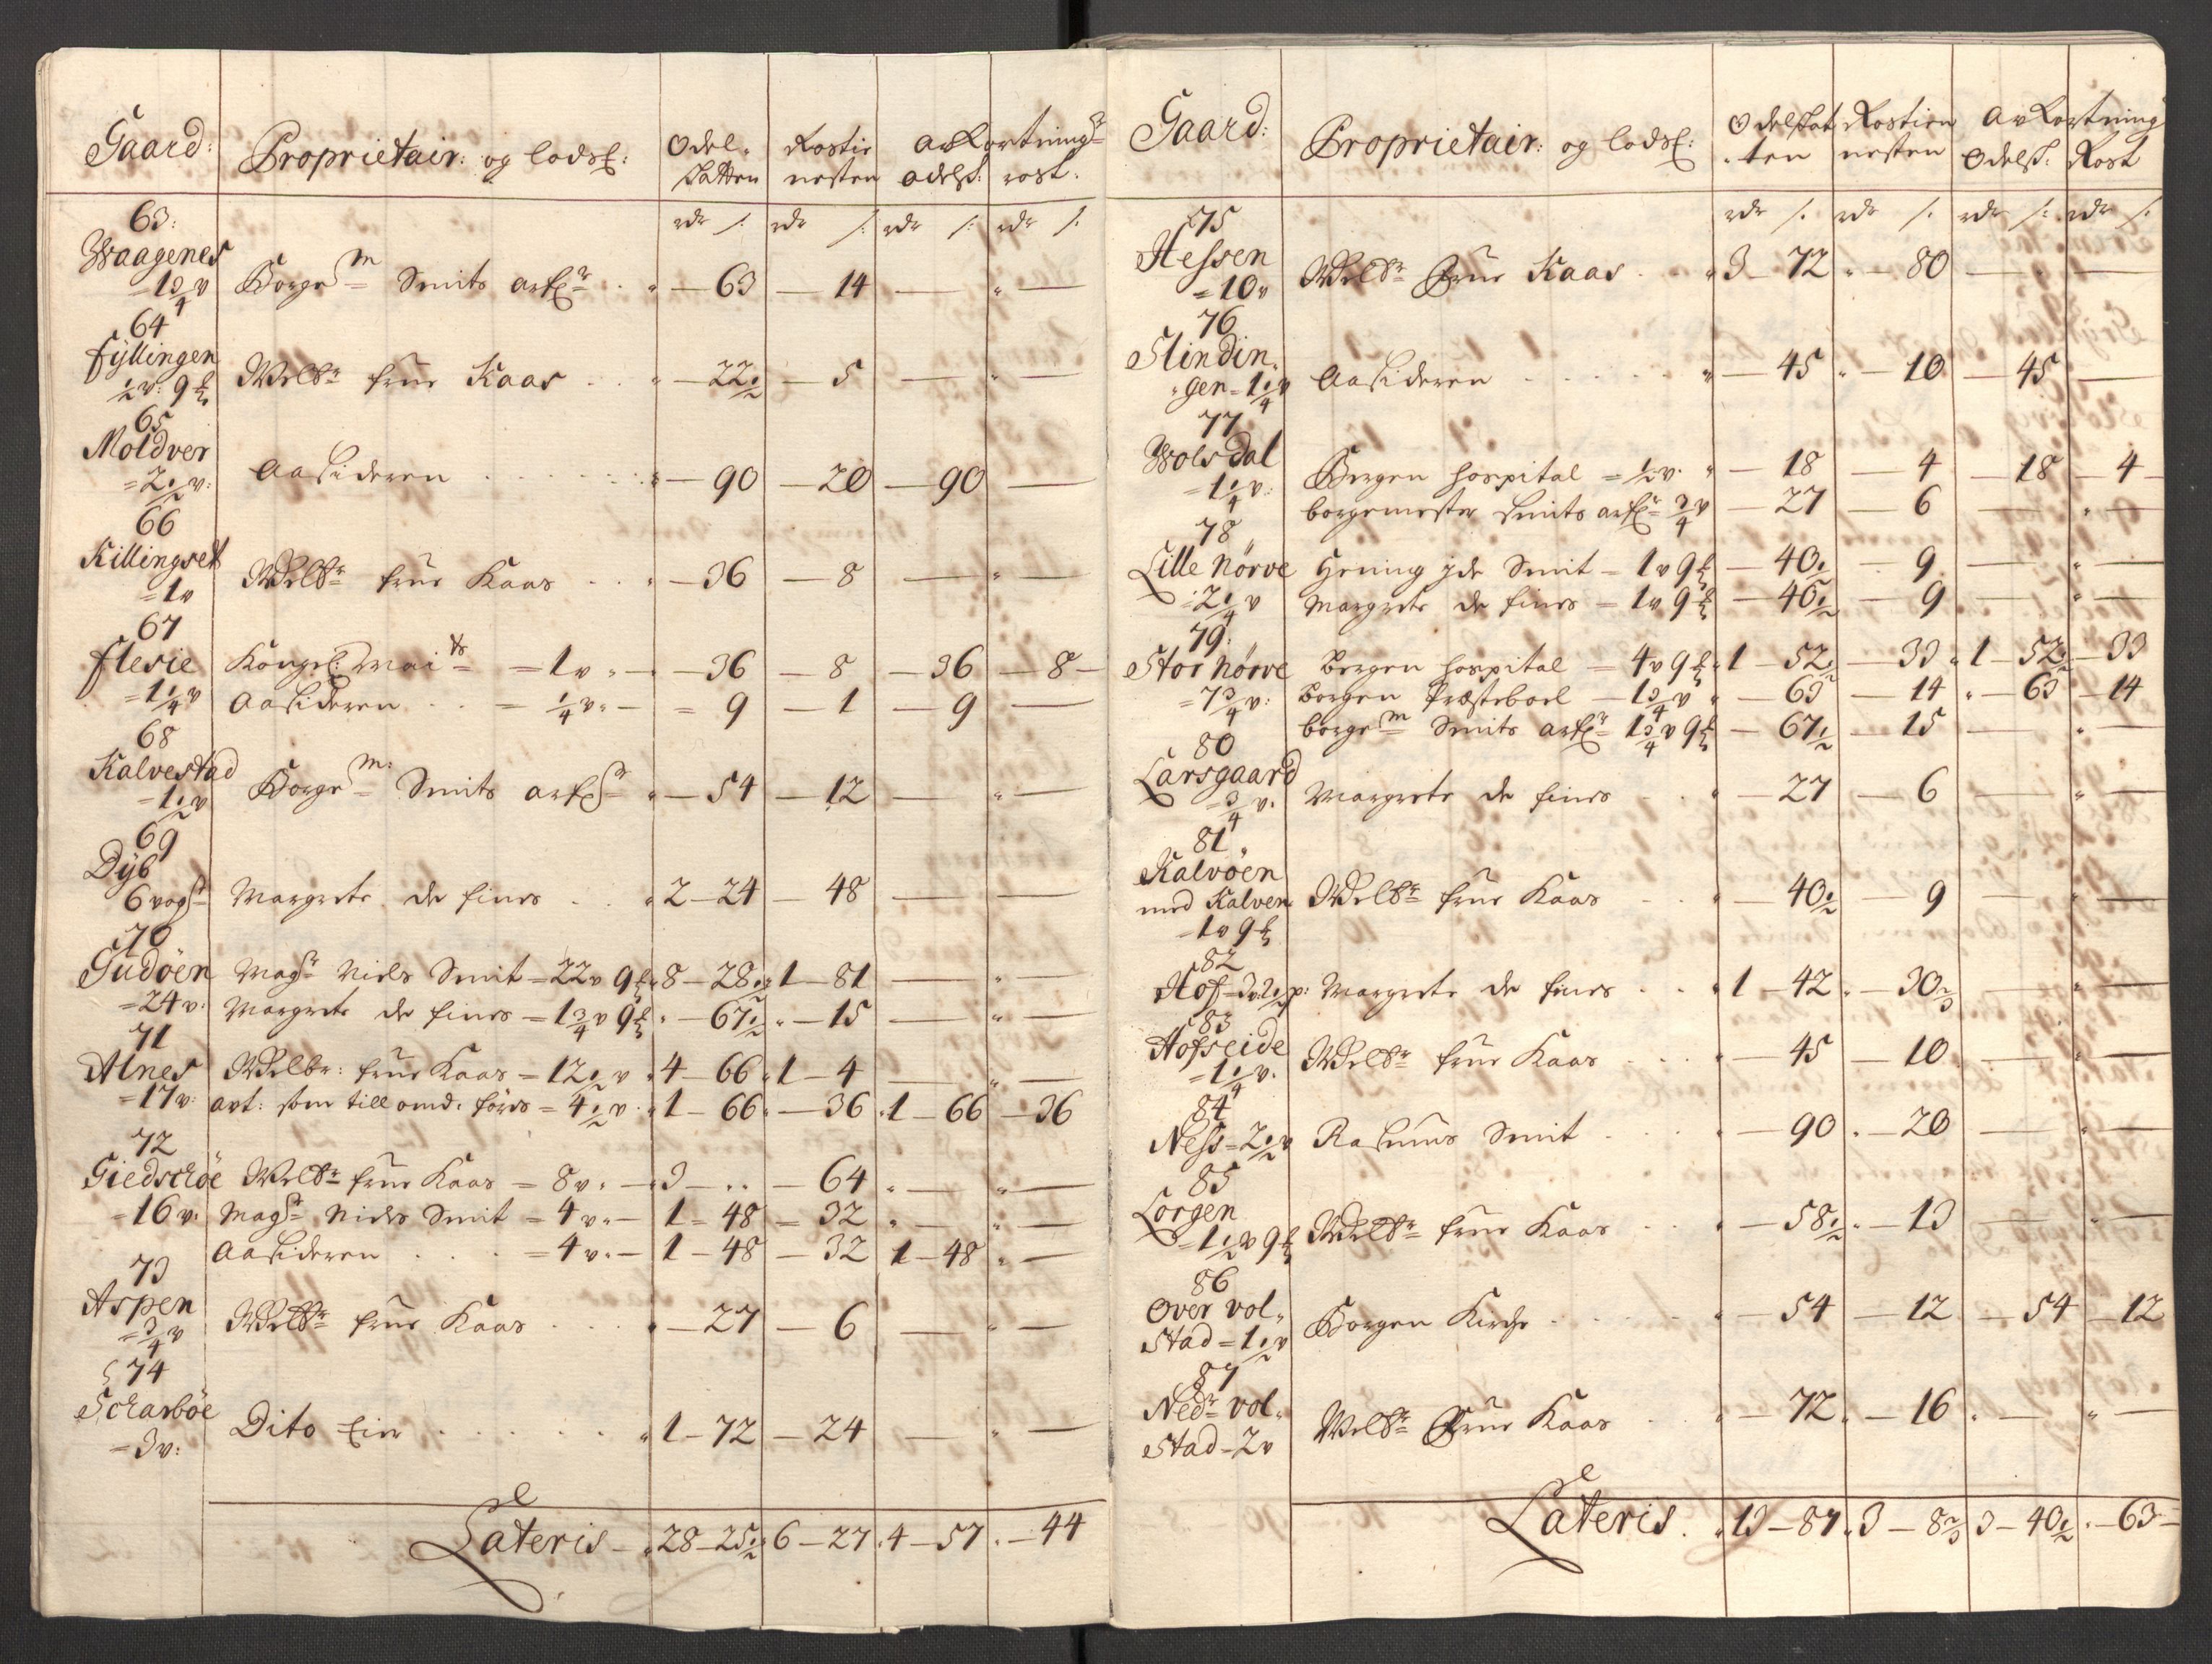 Gaard: Proprietair: og lodsf: Odel- Rostie avKortning
skatten nesten odelsk: rost.
rdr s: rdr s: rdr s: rdr s:
63:
Waagenes
= 1 3/4 v Borge m Smits arf: " — 63 — 14 — " —
64
Fÿllingen
1/2 v: 9 Welbr frue Kaas . . " — 22 1/2 — 5 — " —
65
Moldver
= 2 1/2 v: Aasideren . . . . " — 90 — 20 — 90 —
66
Killingset
= 1 v Welbr frue Kaas . . " — 36 — 8 — " —
67
Flesie Kongel: Mai ts = 1 v " — — 36 — 8 — 36 — 8 —
= 1 1/4 v Aasideren . . = 1/4 v " — = 9 — 1 — 9 —
68
Kalvestad
= 1 1/2 v Borge m: Smits arf " — 54 — 12 — " —
69
Dÿb
6 vogs Margrete de fines . . " 2 — 24 — 48 — —
70
Gudöen Mags Niels Smit = 22 v 9 " 8 — 28 1/2 " 1 — 81 — " —
= 24 v: Margrete de fines = 1 3/4 v 9 " — 67 1/2 " — 15 — " —
71
Alnes Welbr: frue Kaas = 12 1/2 v " 4 — 66 " 1 — 4 — " —
= 17 v: avt: som till omd: föres = 4 1/2 v " 1 — 66 " — 36 " 1 — 66 — 36
72
Giedschöe Welbr frue Kaas = 8 v " — " 3 — .. — 64 " — " —
= 16 v: Mags Niels Smit = 4 v " — 1 — 48 — 32 " — " —
Aasideren . . . = 4 v " — 1 — 48 — 32 1 — 48 " —
73
Aspen
= 3/4 v Welbr frue Kaas . . . " — 27 — 6 — " —
74
Scharböe
= 3 v: Dito Ein . . . . . " 1 — 72 — 24 — " —
Lateris — " 28 — 25 1/2 " 6 — 27 " 4 — 57 " — 44
Gaard: Proprietair: og lodsf: Odelskat Rostien avKortning
ten nesten Odelsk: Rost
rdr s: rdr s: rdr s: rdr s:
75
Hessen
= 10 v Welbr Frue Kaas . . " 3 — 72 " — 80 — " —
76
Slindin
gen = 1 1/4 v Aasideren . . . . . " — 45 " — 10 — 45 —
77
Wolsdal Bergen hospital = 1/2 v " — 18 — 4 — 18 — 4 —
= 1 1/4 v: borgemester Smits arf 3/4 v — 27 — 6 — " —
78
Lille Nörve Hening Smit = 1 v 9 — 40 1/2 — 9 — " —
= 2 1/4 v Margrete de fines = 1 v 9 — 40 1/2 — 9 — " —
79:
Stor Nörve Bergen hospital = 4 v 9 " 1 — 52 1/2 — 33 " 1 — 52 1/2 — 33
= 7 3/4 v: Borgen Præsteboel — 1 3/4 v " — 63 — 14 " — 63 — 14
borge m Smits arf 1 3/4 v 9 — 67 1/2 — 15 — " —
80
Larsgaard
= 3/4 v: Margrete de fines . . " — 27 — 6 — " —
81
Kalvöen
med Kalven Welbr frue Kaas . . " — 40 1/2 — 9 — " —
= 1 v 9
82
Hof = 3 v 2 1/2 p: Margrete de fines . . " 1 — 42 " — 30 2/3 — " —
83
Hofseide
= 1 1/4 v: Welbr frue Kaas . . . " — 45 — 10 — " —
84
Ness = 2 1/2 v Rasmus Smit . . . " — 90 " — 20 — " —
85
Lorgen
= 1 1/2 v 9 Welbr frue Kaas . . " — 58 1/2 " — 13 — " —
86
Over vol-
Stad = 1 1/2 v Borgen Kirche . . . . " — 54 — 12 — 54 — 12
87
Nedr vol-
Stad = 2 v Welbr Frue Kaas . . " — 72 " — 16 " — " —
Lateris . " 13 — 87 " 3 — 8 2/3 3 — 40 1/2 " — 63 —